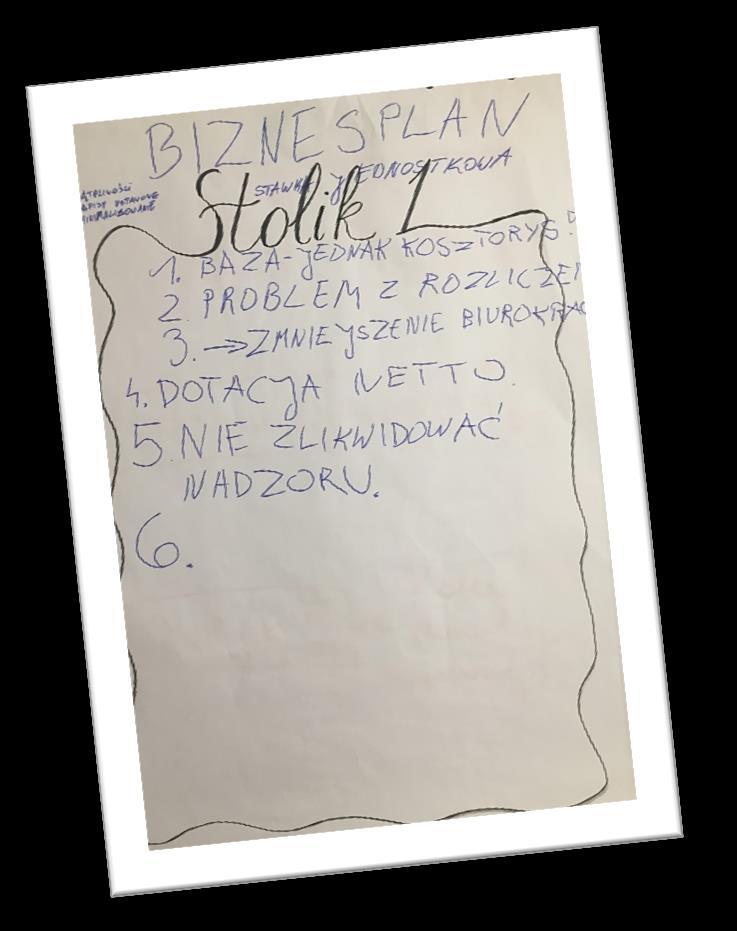 BIZNESPLAN
STAWKA jEDNOSTKOWA
Stolik 1
1. BAZA-jEDNAK KOSZTORYS?
2. PROBLEM Z ROZLICZE
3. →ZMNIEjSZENIE BIUROKRAC
4. DOTACjA NETTO.
5. NIE ZLIKWIDOWAĆ
NADZORU.
6.